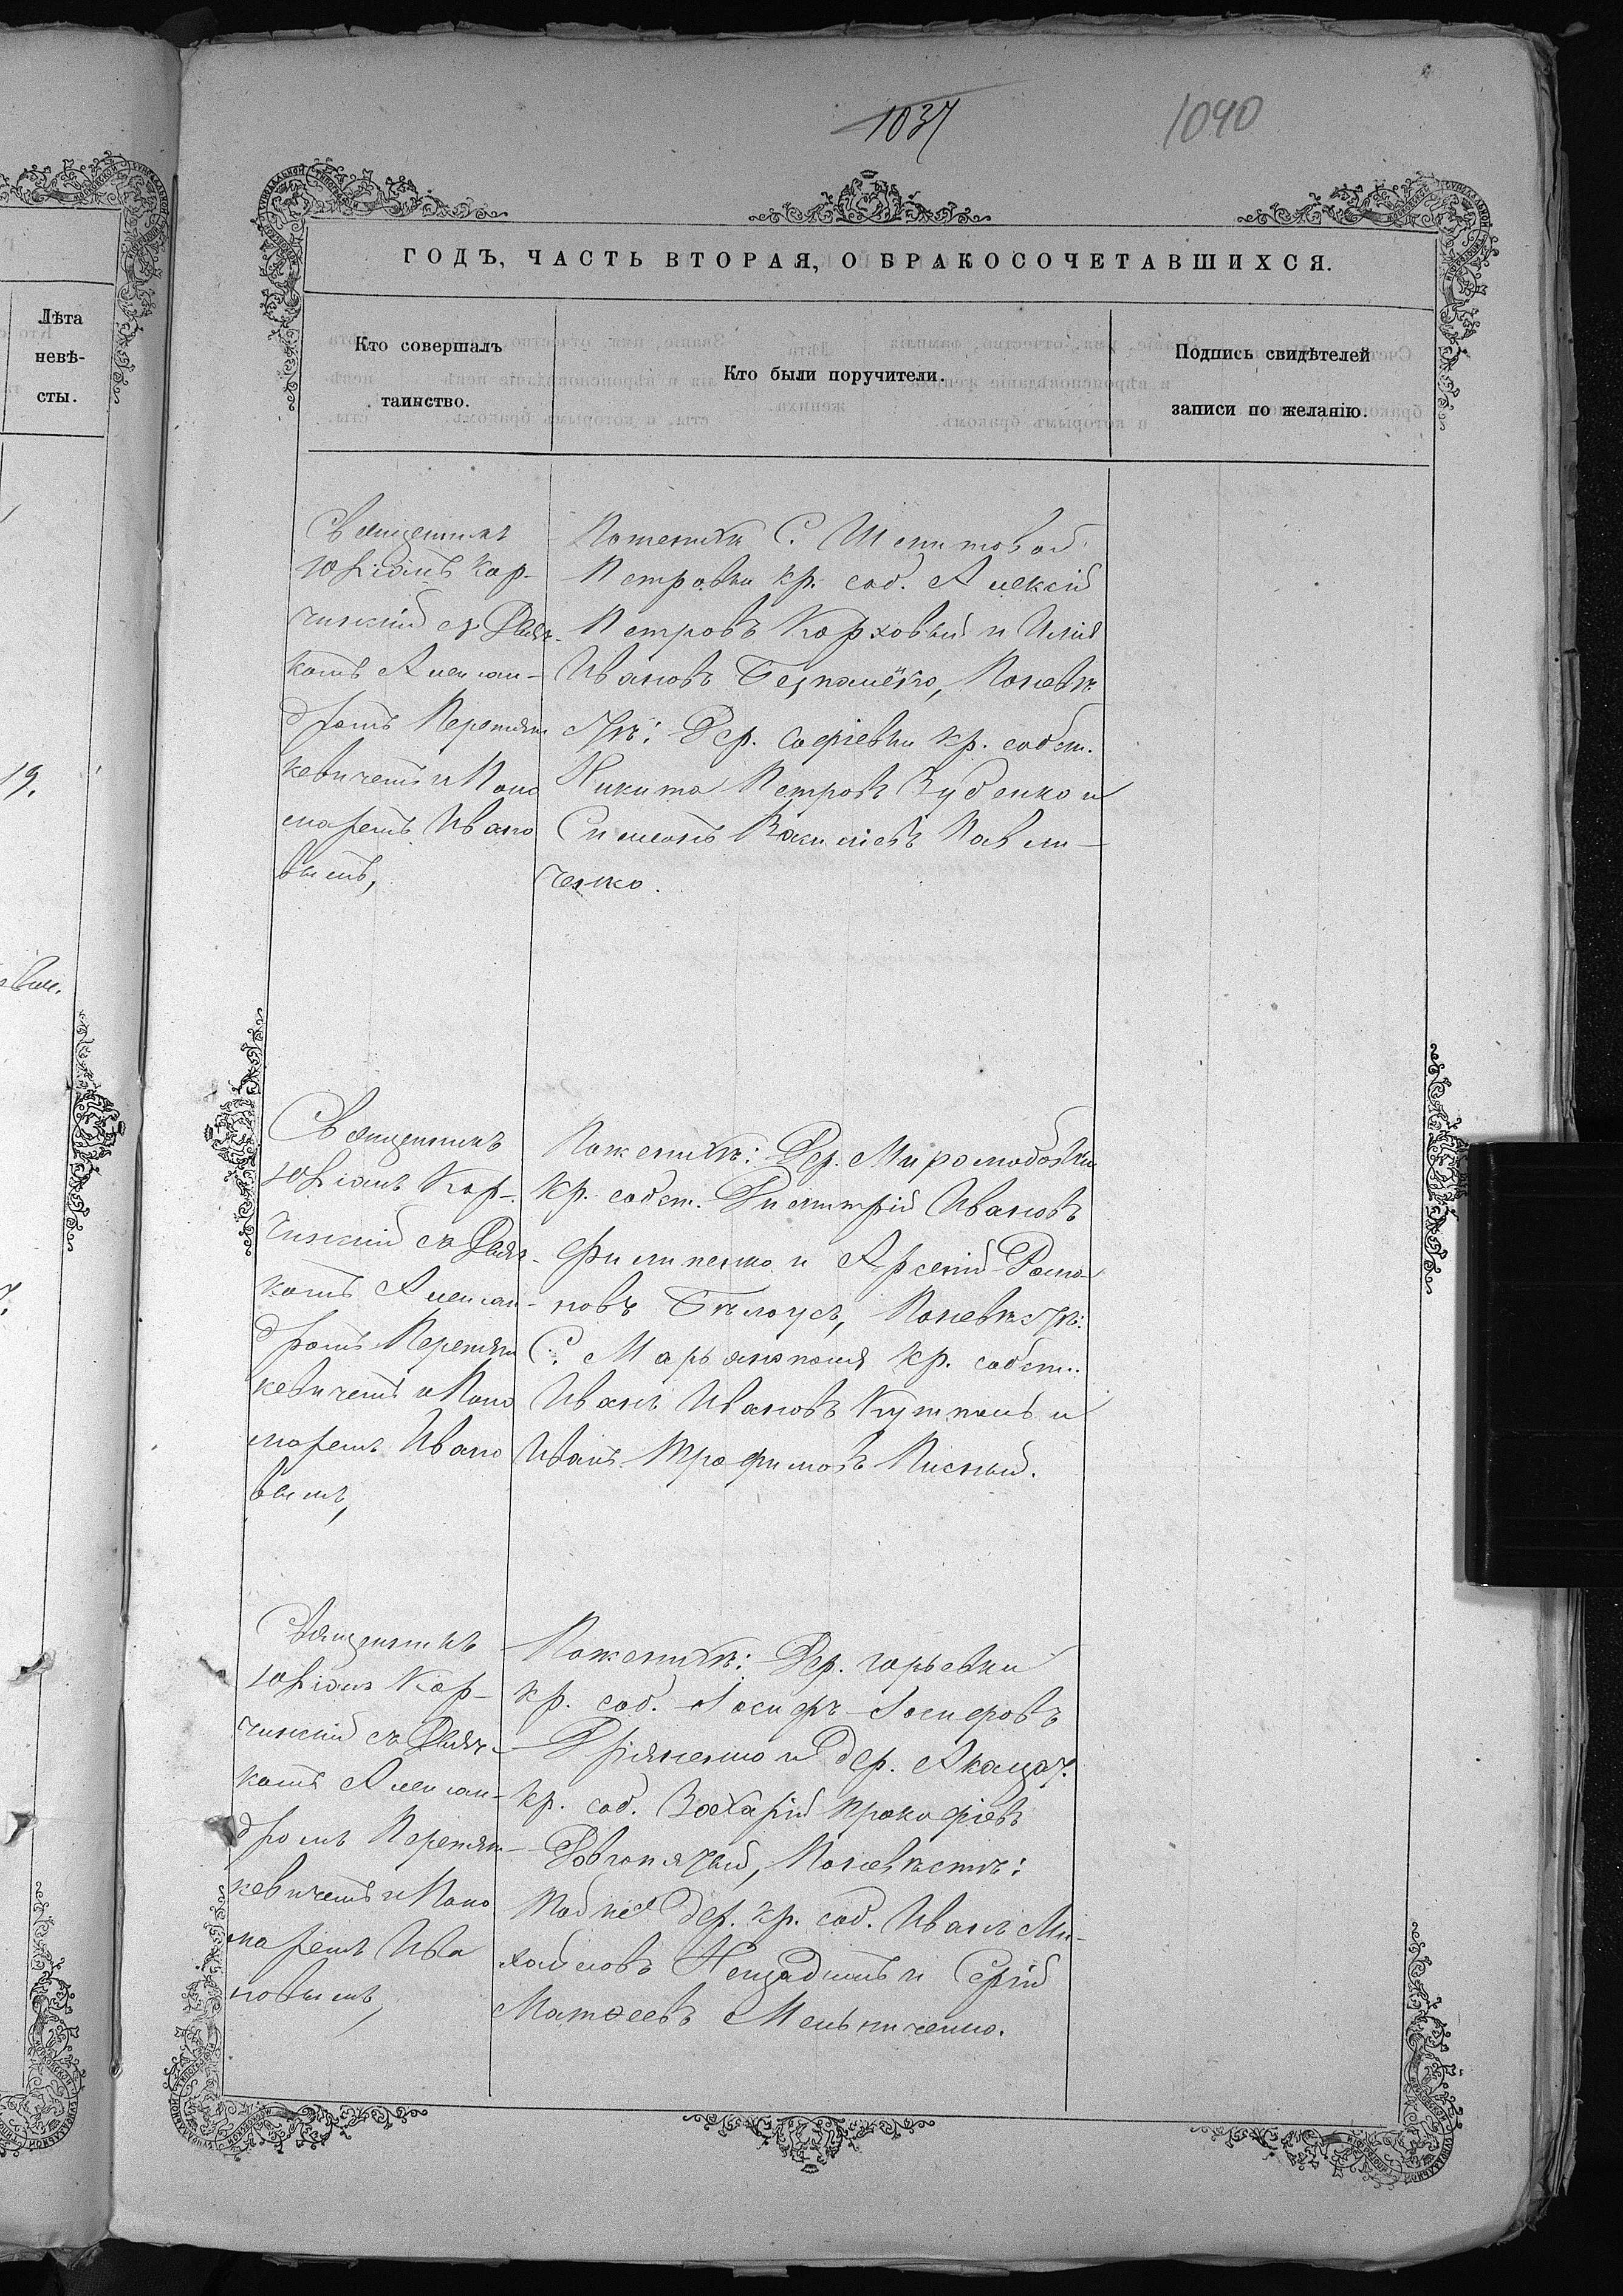 1037
1040
ГОДЪ, ЧАСТЬ ВТОРАЯ, О БРАКОСОЧЕТАВШИХСЯ.
Лѣта
невѣ-
сты.
19.
Кто совершалъ
таинство.
Кто были поручители.
Подпись свидѣтелей
записи по желанію.
Священникъ
Юліанъ Кор-
чинскій съ Дьяч-
комъ Алексан-
дромъ Перетят
кевичемъ и Поно
маремъ Ивано
вымъ,
Поженихи С. Шепитовой
Петровки кр. соб. Алексій
Петровъ Корховый и Илія
Ивановъ Безпалёко, Поневѣ-
стѣ: Дер. Софіевки кр. собст.
Никита Петровъ Зубенко и
Симеонъ Васильевъ Павли-
ченко.
Священникъ
Юліанъ Кор-
чинскій съ Дьяч-
комъ Алексан-
дромъ Перетят
кевичемъ и Поно
маремъ Ивано
вымъ,
Поженихѣ: Дер. Миролюбовки
кр. собст. Димитрій Ивановъ
Филипенко и Арсеній Рома-
новъ Бѣлоусъ, Поневѣстѣ:
С. Марьянополя кр. собст.
Иванъ Ивановъ и
Иванъ Трофимовъ Писный.
Священникъ
Юліанъ Кор-
чинскій съ Дьяч-
комъ Алексан-
дромъ Перетят-
кевичемъ и Поно
маремъ Ива
новымъ,
Поженихѣ: Дер. Горьевки
кр. соб. Іосифъ Іосифовъ
и дер.
кр. соб. Захарій Прокофіевъ
Довгопятый, Поневѣстѣ:
Той же дер. кр. соб. Иванъ Ми-
хайловъ и Сергій
Матѳеевъ Мельниченко.